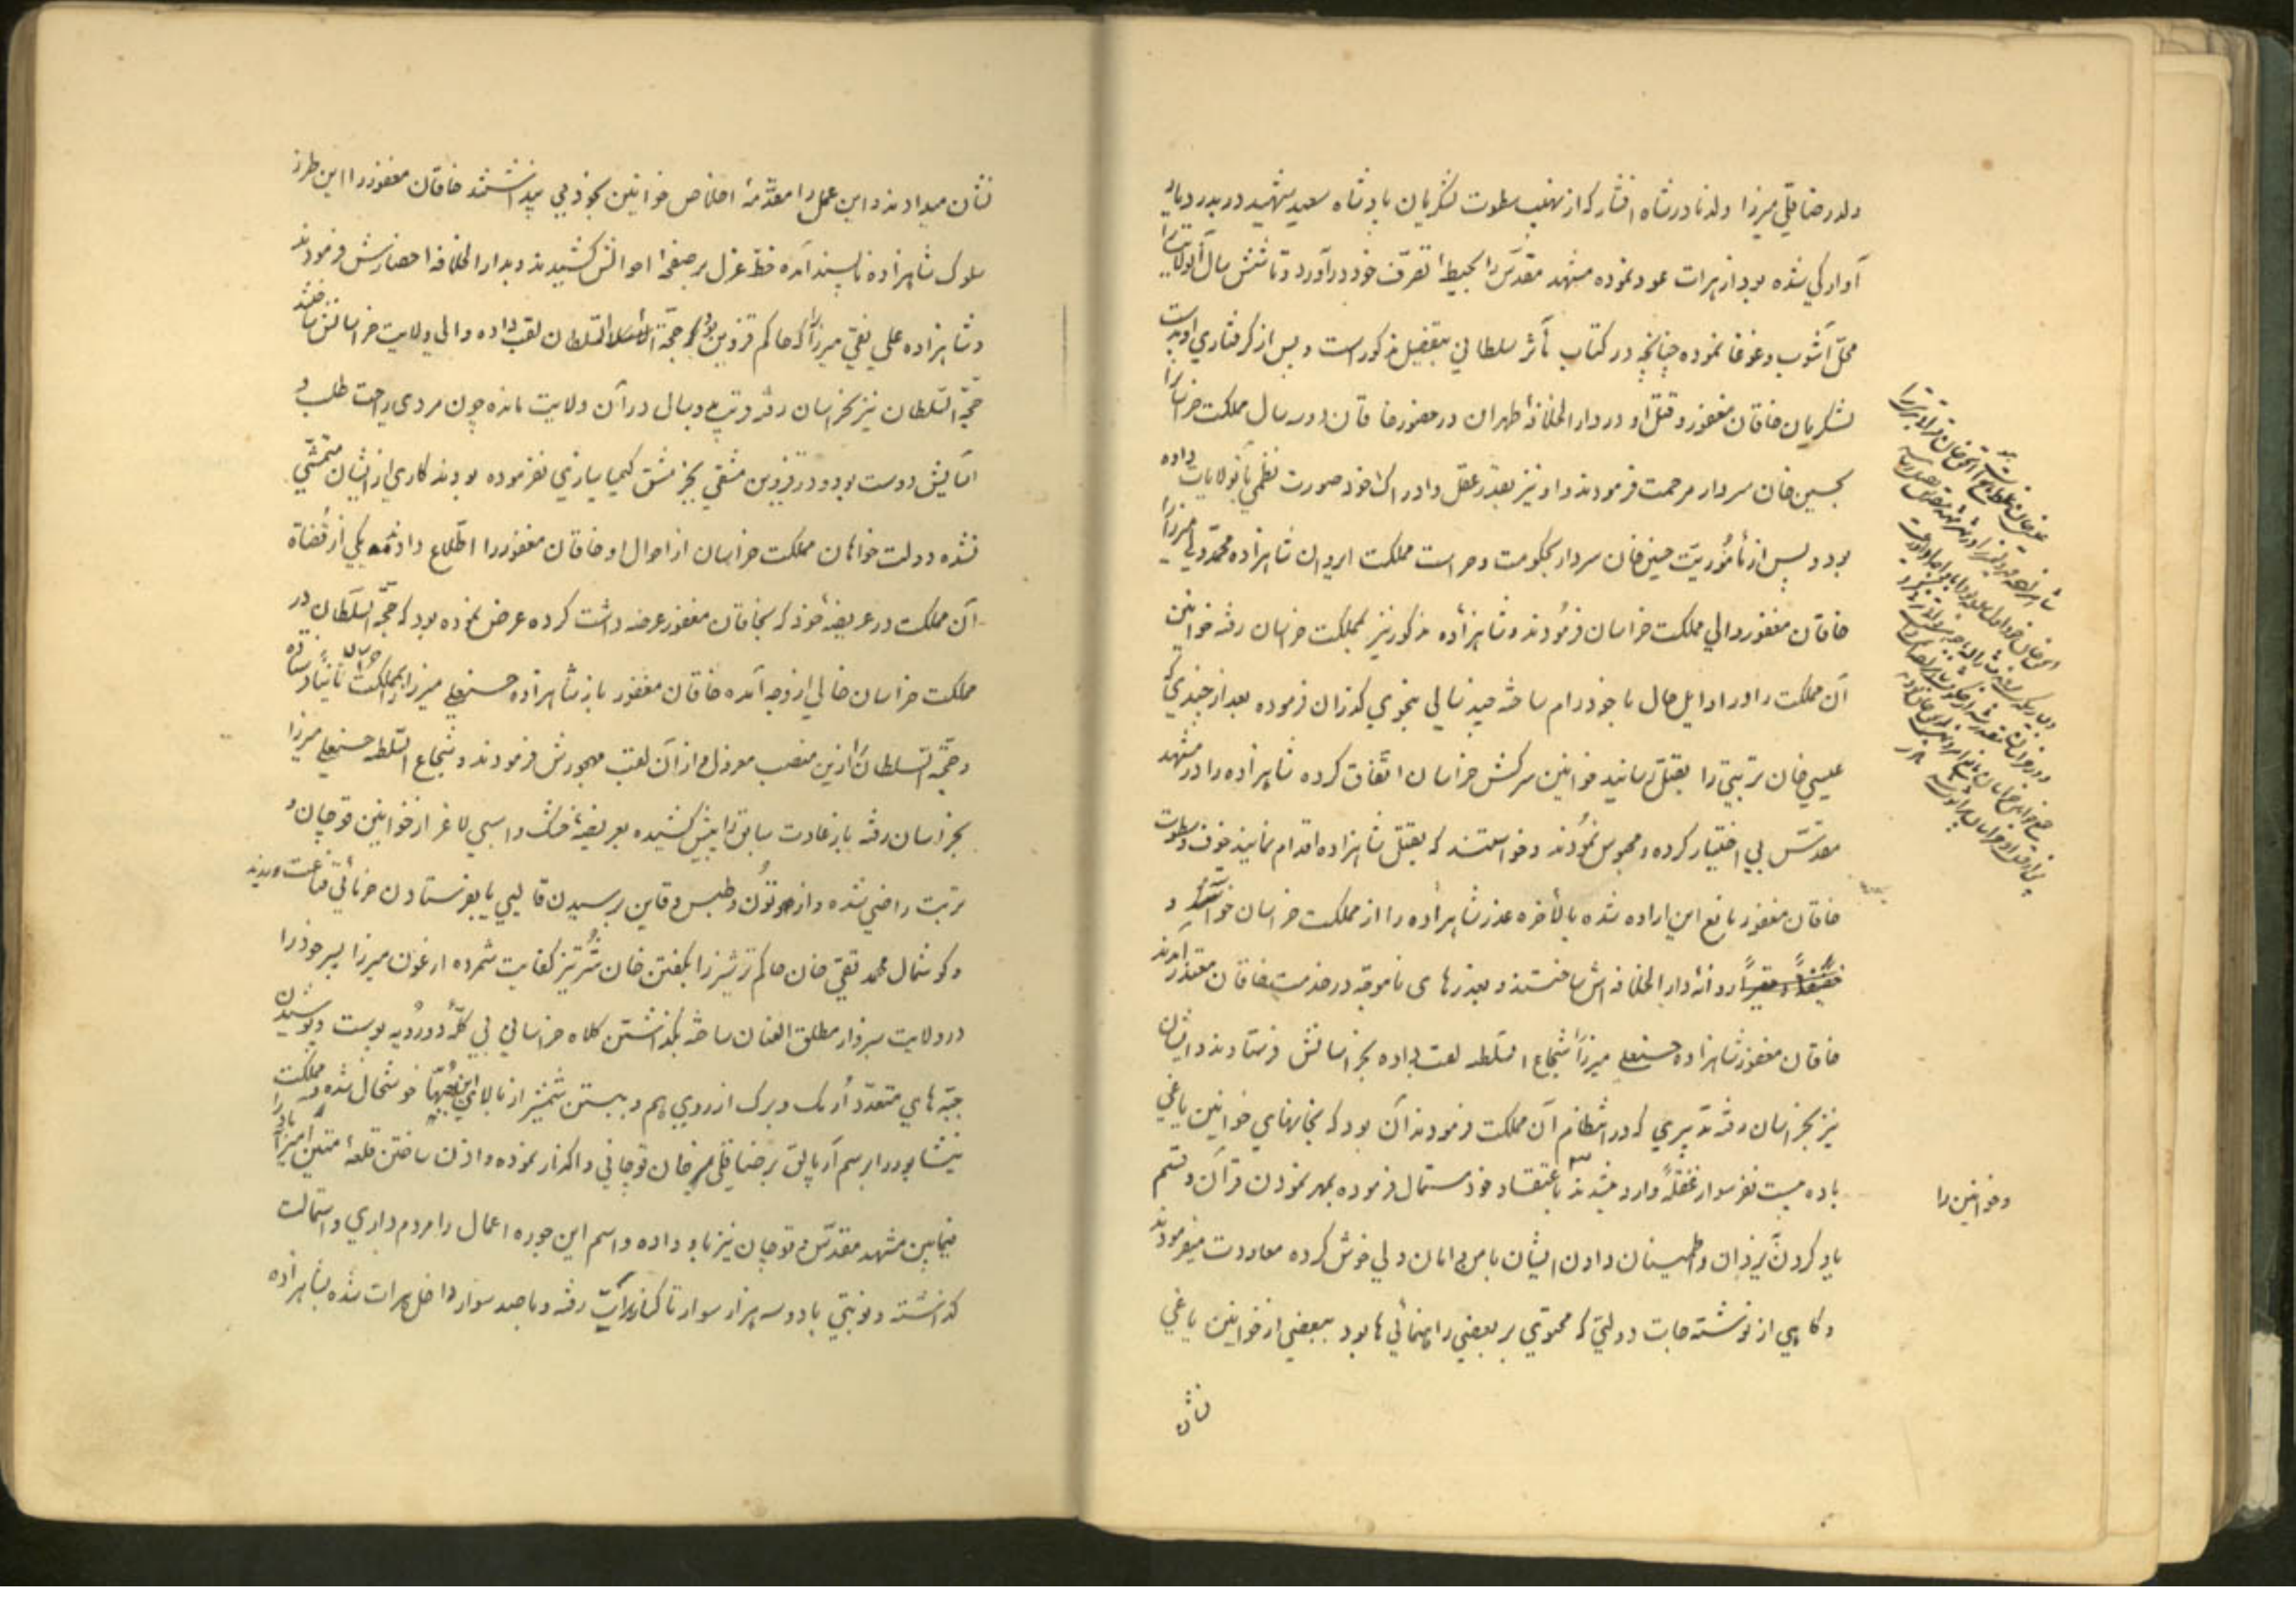 ولد رضا قلی میرزا ولد نادر شاه افشار که از نهیب سطوت لشکریان پادشاه سعید شهید در بدر دیار
آوارکی شده بود از هرات عود نموده مشهد مقدّس را بحیطهٔ تصرّف خود در آورد و تا شش سال آنولایترا
محلّ آشوب و غوغا نموده چنانچه در کتاب مآثر سلطانی بتفصیل مذکور است و پس از کرفتاری او بدست
لشکریان خاقان مغفور و قتل او در دار الخلافهٔ طهران در حضور خاقان دو سه سال مملکت خراسانرا
بحسین خان سردار مرحمت فرمودند و او نیز بقدر عقل و ادراک خود صورت نظمی بآنولایات داده
بود و پس از مأموریّت حسین خان سردار بحکومت و حراست مملکت ایروان شاهزاده محمّد ولی میرزا را
خاقان مغفور والی مملکت خراسان فرمودند و شاهزادهٔ مذکور نیز بمملکت خراسان رفته خوانین
آن مملکت را در اوایل حال با خود رام ساخته چند سالی بنحوی کذران فرموده بعد از چندی که
عیسی خان تربتی را بقتل رسانید خوانین سرکش خراسان اتّفاق کرده شاهزاده را در مشهد
مقدّس بی اختیار کرده و محبوس نمودند و خواستند که بقتل شاهزاده اقدام نمایند خوف و سطوت
خاقان مغفور مانع این اراده شده بالأخره عذر شاهزاده را از مملکت خراسان خواسته و
روانهٔ دار الخلافه اش ساختند و بعذرهای ناموجّه در خدمت خاقان معتذر آمدند
خاقان مغفور شاهزاده حسنعلی میرزا را شجاع السّلطنه لقب داده بخراسانش فرستادند و ایشان
نیز بخراسان رفته تدبیری که در انتظام آن مملکت فرمودند آن بود که بخانهای خوانین یاغی
با ده بیست نفر سوار غفلةً وارد میشدند باعتقاد خود مستمال فرموده بمهر نمودن قرآن و قسم
یاد کردن بیزدان و اطمینان دادن ایشان بامن و امان دلی خوش کرده معاودت میفرمودند
و کاهی از نوشته جات دولتی که محتوی بر بعضی راهنمائی ها بود ببعضی از خوانین یاغی
و خوانین را
نشان
نشان میدادند و این عمل را مقدّمهٔ اخلاص خوانین بخود می پنداشتند خاقان مغفور را این طرز
سلوک شاهزاده ناپسند آمده خطّ عزل بر صفحهٔ احوالش کشیدند و بدار الخلافه احضارش فرمودند
و شاهزاده علی نقی میرزا را که حاکم قزوین بود حجّة السّلطان لقب داده والی ولایت خراسانش ساختند
حجّة السّلطان نیز بخراسان رفته و قریب دو سال در آن ولایت مانده چون مردی راحت طلب و
آسایش دوست بود و در قزوین مشقی بجز مشق کیمیا سازی نفرموده بودند کاری از ایشان متمشّی
نشده دولت خواهان مملکت خراسان از احوال او خاقان مغفور را اطّلاع دادند یکی از قضاة
آن مملکت در عریضهٔ خود که بخاقان مغفور عرضه داشت کرده عرض نموده بود که حجّة السّلطان در
مملکت خراسان خالی از وجه آمده خاقان مغفور باز شاهزاده حسنعلی میرزا را بمملکت خراسان ثانیاً فرستاده
و حجّة السّلطان را ازین منصب معزول و از آن لقب مهجورش فرمودند و شجاع السّلطنه حسنعلی میرزا
بخراسان رفته باز عادت سابق را پیش کشیده بعریضهٔ خشک و اسبی لاغر از خوانین قوچان و
تربت راضی شده و از تون و طبس و قاین برسیدن قالیی یا بفرستادن خرمائی قناعت ورزیدند
و کوشمال محمد تقی خان حاکم ترشیز را بکفتن خان شرتیز کفایت شمرده ارغون میرزا پسر خود را
در ولایت سبزوار مطلق العنان ساخته بکذاشتن کلاه خراسانی بی کلّهٔ دو رویه پوست و پوشیدن
جبّه های متعدّد اُرمک و برک از روی هم و ببستن شمشیر از بالای این جبّها خوشحال شده مملکت
نیشابور را برسم آرپالق برضا قلی خان قوچانی واکذار نموده و اذن ساختن قلعهٔ متین امیرآباد را
فیمابین مشهد مقدّس و قوچان نیز باو داده و اسم این جوره اعمال را مردم داری و استمالت
کذاشته و نوبتی با دو سه هزار سوار تا کنار هرات رفته و با صد سوار داخل هرات شده بشاهزاده